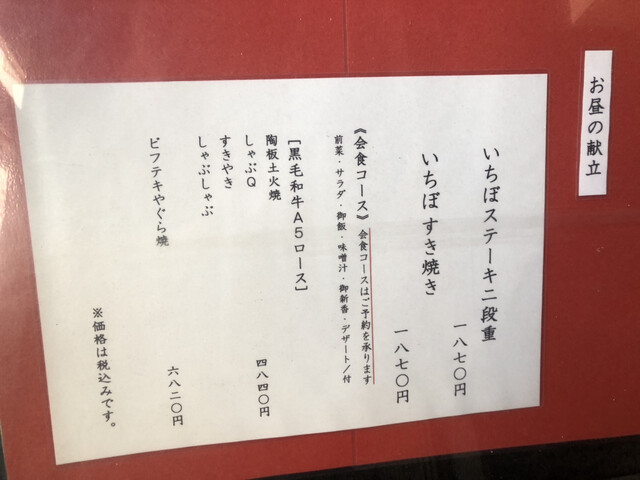 お昼の献立
いちぼステーキ二段重 一八七〇円
いちぼすき焼き 一八七〇円
《会食コース》会食コースはご予約を承ります
前菜・サラダ・御飯・味噌汁・御新香・デザート/付
[黒毛和牛A5ロース]
陶板土火焼
しゃぶQ 四八四〇円
すきやき
しゃぶしゃぶ
ビフテキやぐら焼 六八二〇円
※価格は税込みです。